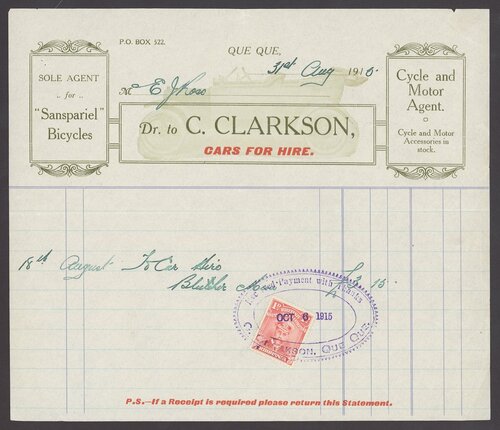 P.O. BOX 322.
QUE QUE,
31st Aug 1915.
M E J Ross
SOLE AGENT
for
"Sanspariel"
Bicycles
Dr. to C. CLARKSON,
CARS FOR HIRE.
Cycle and
Motor
Agent.
Cycle and Motor
Accessories in
stock.
18th August To Car Hire
£3 15
Received Payment with thanks
OCT 6 1915
C. CLARKSON, QUE QUE.
P.S.—If a Receipt is required please return this Statement.